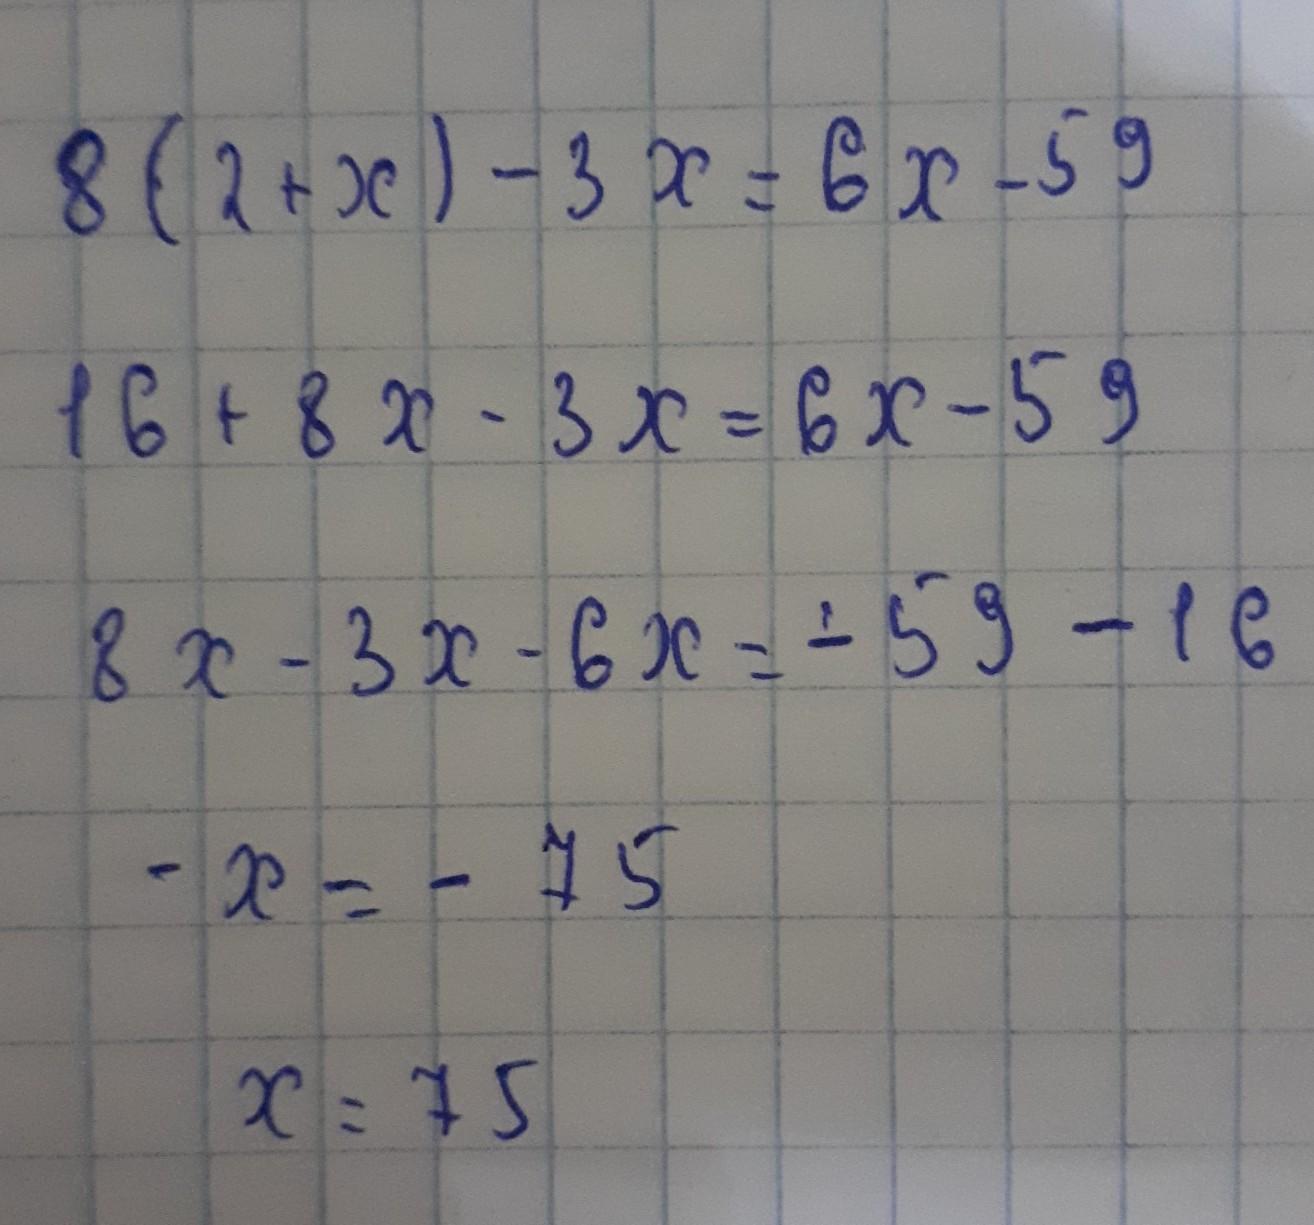 8(2+x)-3x=6x-59
16+8x-3x=6x-59
8x-3x-6x=-59-16
-x=-75
x=75